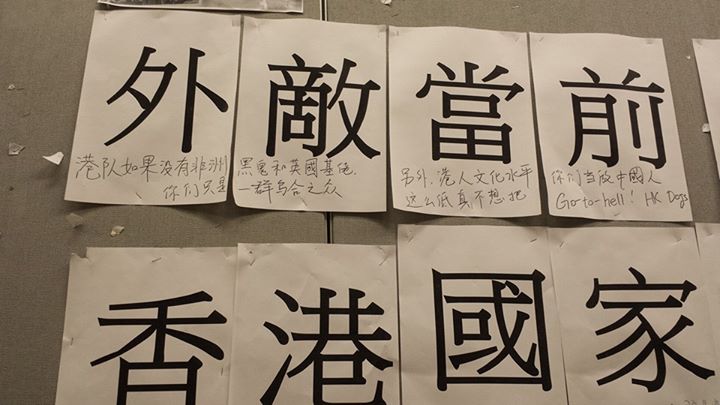 外敵當前
港队如果没有非洲
黑鬼和英國基佬,
你们只是
一群乌合之众
另外,港人文化水平
这么低真不想把
你们当成中國人
Go-to-hell! HK Dogs
香港國家